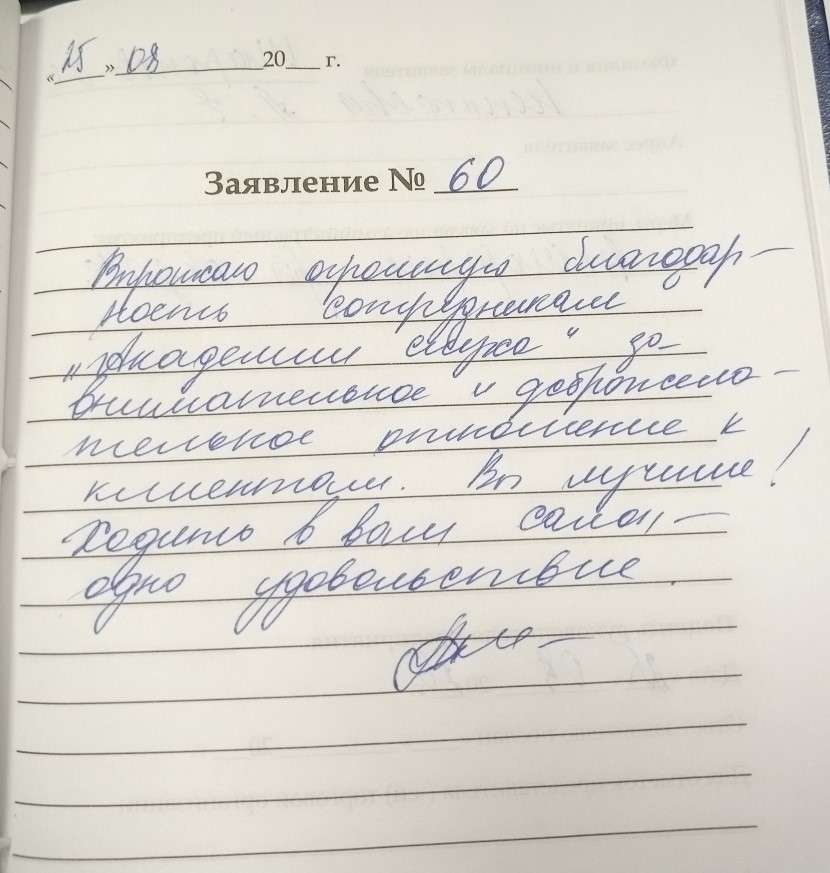 «25» 08 20___ г.
Заявление № 60
Выражаю огромную благодар-
ность сотрудникам
„Академии слуха" за
внимательное и доброжела-
тельное отношение к
клиентам. Вы лучшие!
Ходить в ваш салон -
одно удовольствие.